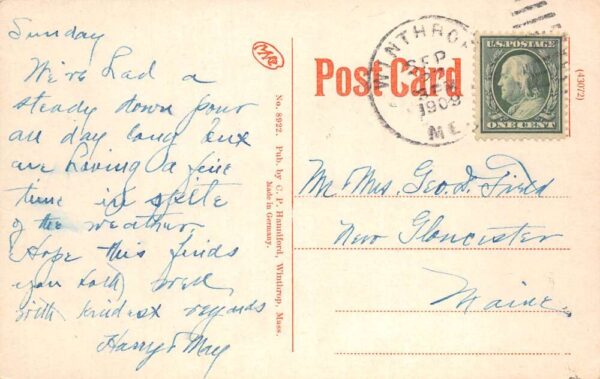 Sunday
We've had a
steady down pour
all day long but
are having a fine
time in spite
of the weather.
Hope this finds
you both well
with kindest regards
Harry & May
No. 8922. Pub. by C. P. Hunniford, Winthrop, Mass.
Made in Germany.
Post Card
(43072)
WINTHROP
SEP
1909
ME
U.S. POSTAGE
ONE CENT
Mr Mrs. Geo. D.
New Gloucester
Maine.